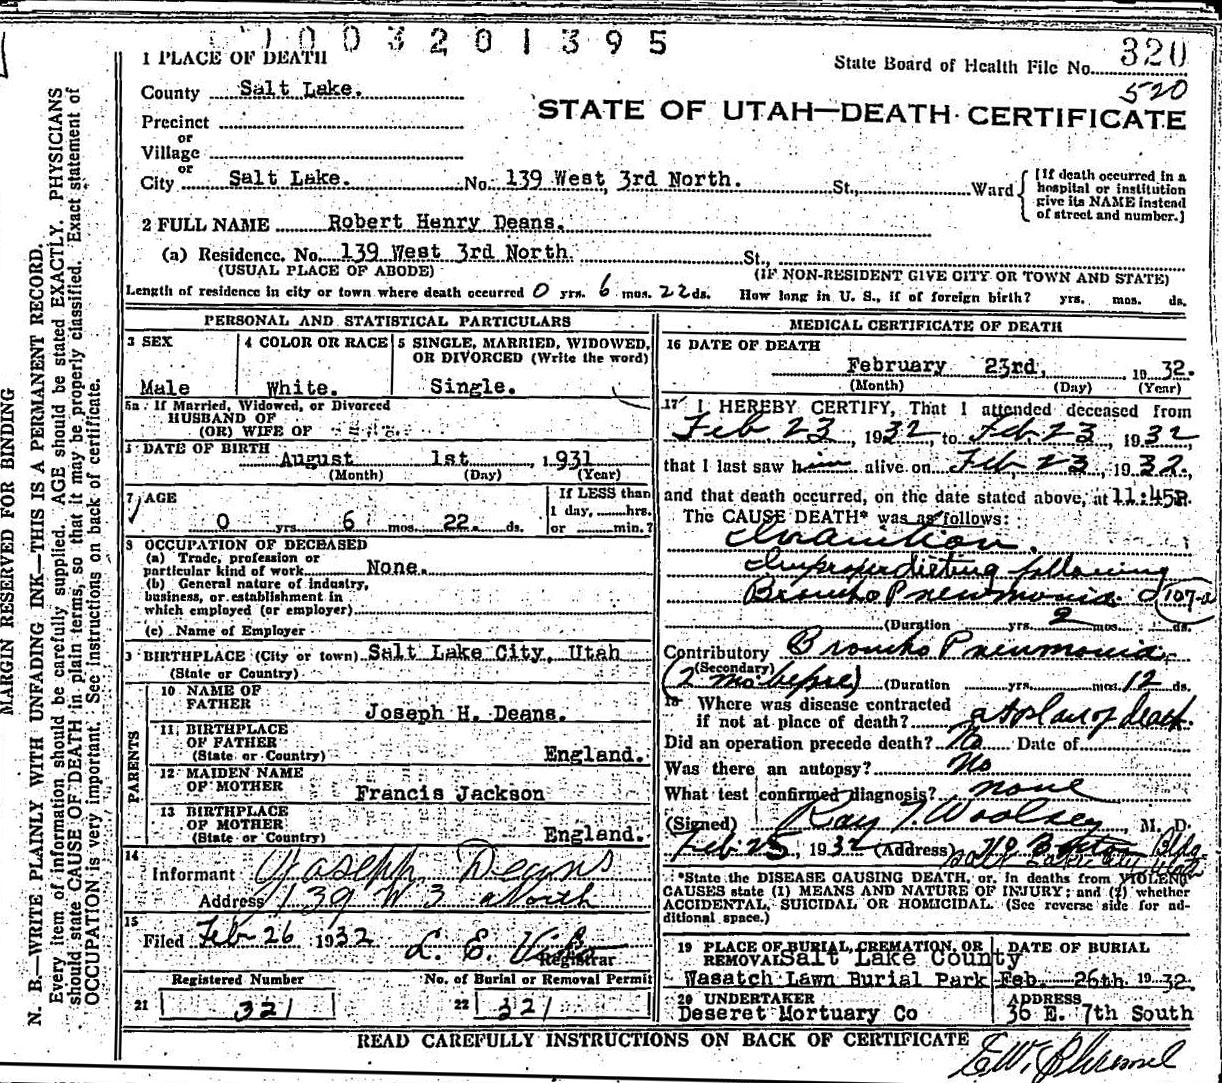 1003201395
1 PLACE OF DEATH
State Board of Health File No. 320
520
County Salt Lake.
STATE OF UTAH—DEATH CERTIFICATE
Precinct
or
Village
or
City Salt Lake. No. 139 West 3rd North. St., Ward
[If death occurred in a hospital or institution give its NAME instead of street and number.]
2 FULL NAME Robert Henry Deans.
(a) Residence. No. 139 West 3rd North. St.,
(USUAL PLACE OF ABODE) (IF NON-RESIDENT GIVE CITY OR TOWN AND STATE)
Length of residence in city or town where death occurred 0 yrs. 6 mos. 22 ds. How long in U. S., if of foreign birth? yrs. mos. ds.
PERSONAL AND STATISTICAL PARTICULARS
3 SEX
Male
4 COLOR OR RACE
White.
5 SINGLE, MARRIED, WIDOWED,
OR DIVORCED (Write the word)
Single.
5a If Married, Widowed, or Divorced
HUSBAND OF
(OR) WIFE OF
DATE OF BIRTH
August 1st, 1931
(Month) (Day) (Year)
7 AGE
0 yrs. 6 mos. 22. ds.
If LESS than
1 day, hrs.
or min.?
8 OCCUPATION OF DECEASED
(a) Trade, profession or
particular kind of work None.
(b) General nature of industry,
business, or establishment in
which employed (or employer)
(c) Name of Employer
9 BIRTHPLACE (City or town) Salt Lake City, Utah
(State or Country)
PARENTS
10 NAME OF
FATHER
Joseph H. Deans.
11 BIRTHPLACE
OF FATHER
(State or Country) England.
12 MAIDEN NAME
OF MOTHER Francis Jackson
13 BIRTHPLACE
OF MOTHER
(State or Country) England.
14
Informant Joseph Deans
Address 139 W 3 North
15
Filed Feb 26 1932 L. E.
Registrar
Registered Number No. of Burial or Removal Permit
21 321 22 321
MEDICAL CERTIFICATE OF DEATH
16 DATE OF DEATH
February 23rd, 1932.
(Month) (Day) (Year)
17 I HEREBY CERTIFY, That I attended deceased from
Feb 23, 1932, to Feb. 23, 1932
that I last saw him alive on Feb 23, 1932,
and that death occurred, on the date stated above, at 11:45P.
The CAUSE DEATH* was as follows:
Inanition.
Improper dieting following
Broncho Pneumonia 107-a
(Duration yrs. 2 mos. ds.
Contributory Broncho Pneumonia
(Secondary)
(2 mo before) (Duration yrs. mos. 12 ds.
18 Where was disease contracted
if not at place of death? at place of death.
Did an operation precede death? No Date of
Was there an autopsy? No
What test confirmed diagnosis? none
(Signed) Ray T. Woolsey, M. D.
Feb 25, 1932 (Address) Boston Bldg
*State the DISEASE CAUSING DEATH, or, in deaths from VIOLENT
CAUSES state (1) MEANS AND NATURE OF INJURY; and (2) whether
ACCIDENTAL, SUICIDAL OR HOMICIDAL. (See reverse side for ad-
ditional space.)
19 PLACE OF BURIAL, CREMATION, OR
REMOVAL Salt Lake County
Wasatch Lawn Burial Park
DATE OF BURIAL
Feb. 26th. 1932.
20 UNDERTAKER
Deseret Mortuary Co
ADDRESS
36 E. 7th South
READ CAREFULLY INSTRUCTIONS ON BACK OF CERTIFICATE
MARGIN RESERVED FOR BINDING
N. B.—WRITE PLAINLY WITH UNFADING INK—THIS IS A PERMANENT RECORD.
Every item of information should be carefully supplied. AGE should be stated EXACTLY. PHYSICIANS
should state CAUSE OF DEATH in plain terms, so that it may be properly classified. Exact statement of
OCCUPATION is very important. See instructions on back of certificate.